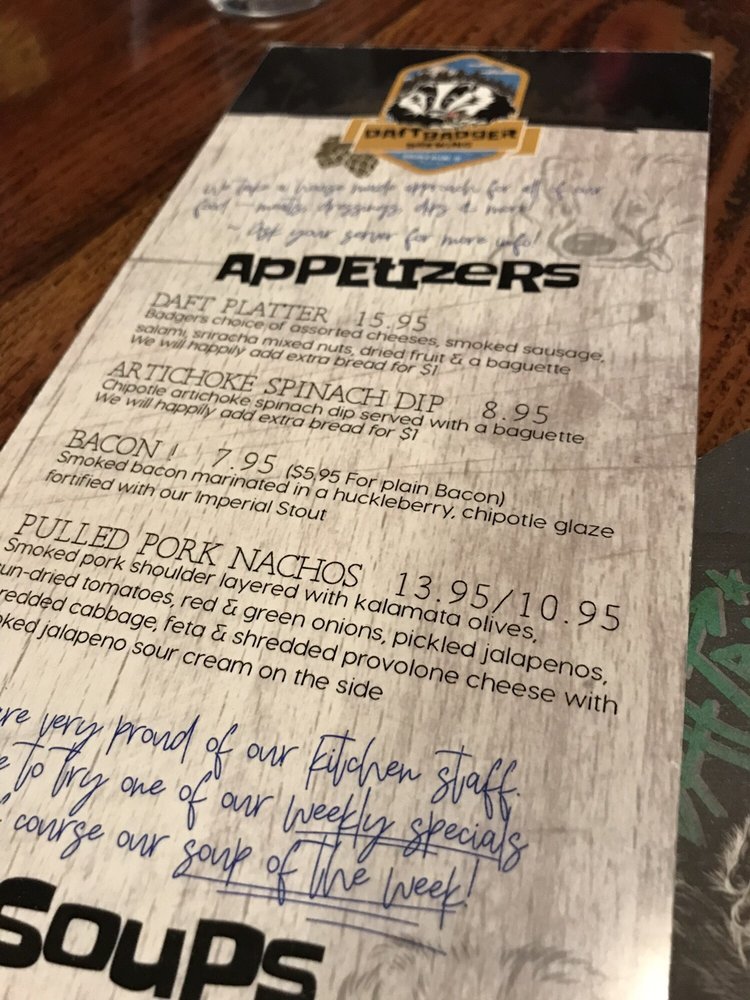 DAFT BADGER
BREWING
We take a house made approach for all of our
food - meats, dressings, dips & more
- Ask your server for more info!
APPETIZERS
DAFT PLATTER 15.95
Badgers choice of assorted cheeses, smoked sausage,
salami, sriracha mixed nuts, dried fruit & a baguette
We will happily add extra bread for $1
ARTICHOKE SPINACH DIP 8.95
Chipotle artichoke spinach dip served with a baguette
We will happily add extra bread for $1
BACON! 7.95 ($5.95 For plain Bacon)
Smoked bacon marinated in a huckleberry, chipotle glaze
fortified with our Imperial Stout
PULLED PORK NACHOS 13.95/10.95
Smoked pork shoulder layered with kalamata olives,
un-dried tomatoes, red & green onions, pickled jalapenos,
redded cabbage, feta & shredded provolone cheese with
oked jalapeno sour cream on the side
re very proud of our kitchen staff.
e to try one of our weekly specials
f course our soup of the week!
Soups